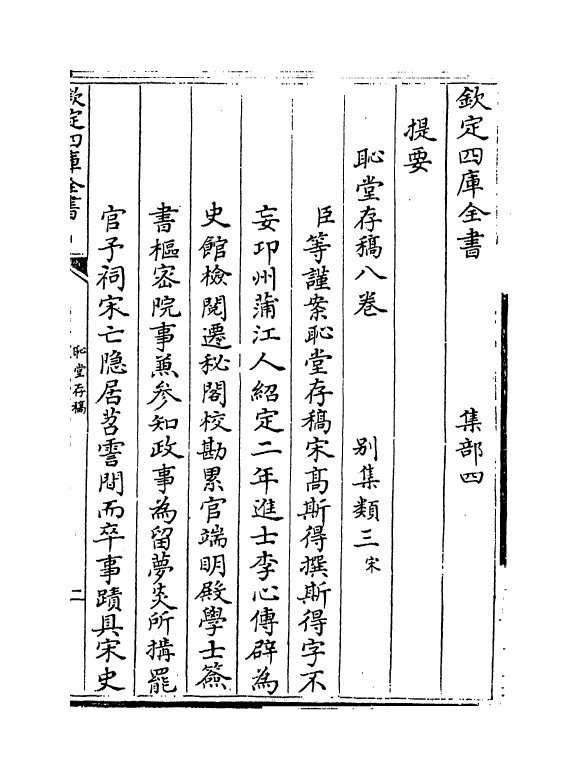 欽定四庫全書　集部四
提要
恥堂存稿八卷　别集類三宋
臣等謹案恥堂存稿宋髙斯得撰斯得字不
妄卭州蒲江人紹定二年進士李心傳辟為
史館檢閱遷秘閣校勘累官端明殿學士簽
書樞宻院事兼參知政事為留夢炎所搆罷
官予祠宋亡隐居苕霅間而卒事蹟具宋史
欽定四庫全書
恥堂存稿
二